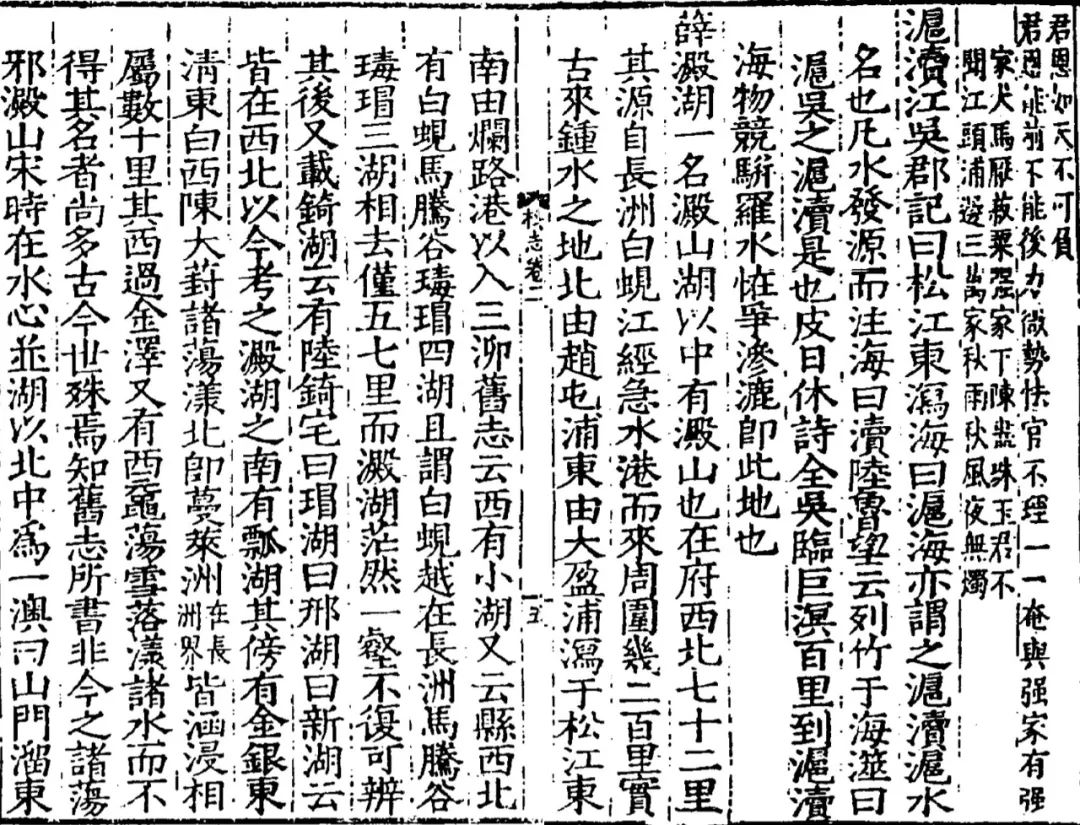 君恩如天不可負
君恩能前不能後力微勢怯官不經一一奄與强家有强
家犬馬厭菽粟强家下陳盡珠玉君不
聞江頭浦邊三萬家秋雨秋風夜無燭
滬瀆江吳郡記曰松江東瀉海曰滬海亦謂之滬瀆滬水
名也凡水發源而注海曰瀆陸魯望云列竹于海澨曰
滬吳之滬瀆是也皮日休詩全吳臨巨溟百里到滬瀆
海物競駢羅水怪爭滲漉卽此地也
薛澱湖一名澱山湖以中有澱山也在府西北七十二里
其源自長洲白蜆江經急水港而來周圍幾二百里實
古來鍾水之地北由趙屯浦東由大盈浦瀉于松江東
志卷二
十五
南由爛路港以入三泖舊志云西有小湖又云縣西北
有白蜆馬騰谷瑇瑁四湖且謂白蜆越在長洲馬騰谷
瑇瑁三湖相去僅五七里而澱湖茫然一壑不復可辨
其後又載錡湖云有陸錡宅曰瑁湖曰邢湖曰新湖云
皆在西北以今考之澱湖之南有瓢湖其傍有金銀東
淸東白西陳大葑諸蕩漾北卽蔓萊洲在長洲界皆涵浸相
屬數十里其西過金澤又有西蕩雪落漾諸水而不
得其名者尚多古今世殊焉知舊志所書非今之諸蕩
邪澱山宋時在水心並湖以北中爲一澳曰山門溜東